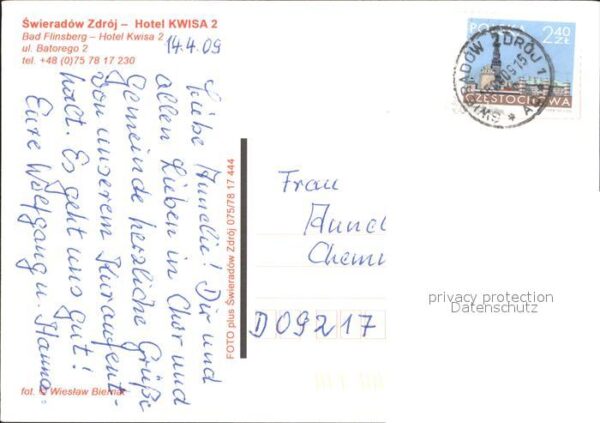 Świeradów Zdrój – Hotel KWISA 2
Bad Flinsberg – Hotel Kwisa 2
ul. Batorego 2
tel. +48 (0)75 78 17 230
14.4.09
Liebe Annelie! Dir und
allen Lieben in Chor und
Gemeinde herzliche Grüße
von unserem Kuraufent-
halt. Es geht uns gut!
Eure Wolfgang u. Hanna.
fot. © Wiesław Biernat
FOTO plus Świeradów Zdrój 075/78 17 444
POLSKA 2,40 ZŁ
CZĘSTOCHOWA
Frau
Chemn
D 09217
privacy protection
Datenschutz